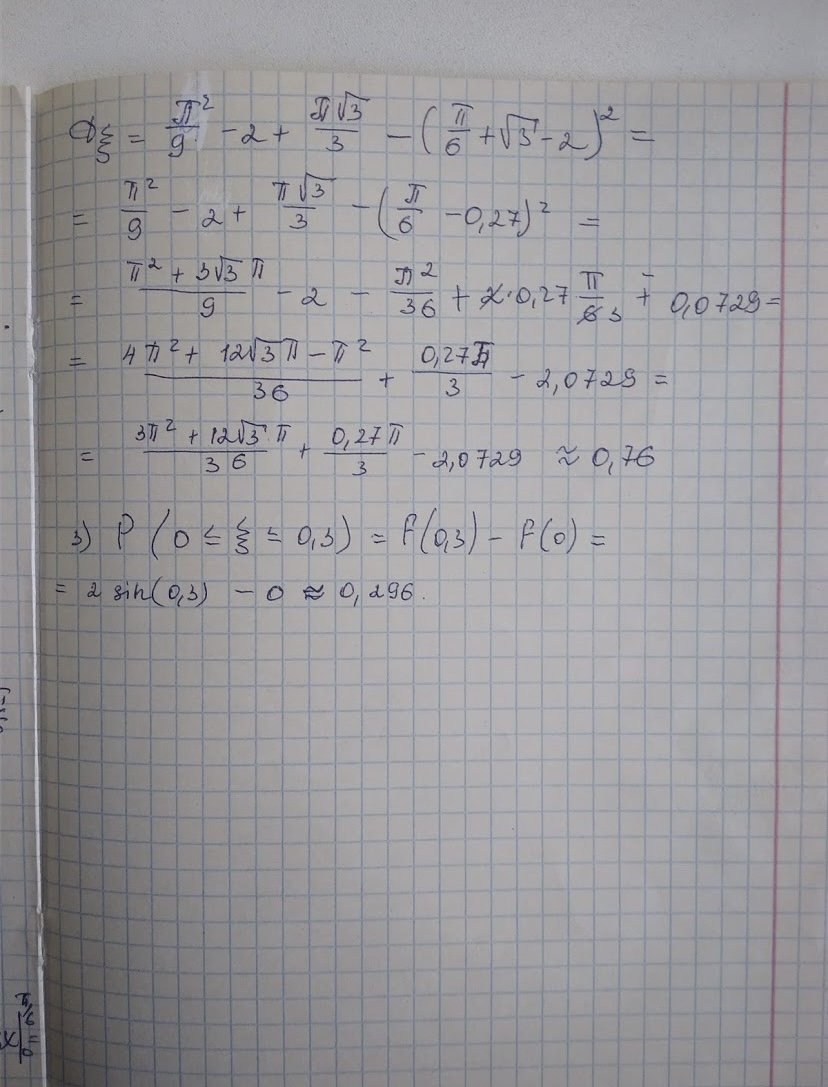 Dξ = π²/9 - 2 + π√3/3 - (π/6 + √3 - 2)² =
= π²/9 - 2 + π√3/3 - (π/6 - 0,27)² =
= (π² + 3√3 π)/9 - 2 - π²/36 + 2·0,27 π/6 3 - 0,0729 =
= (4π² + 12√3 π - π²)/36 + 0,27π/3 - 2,0729 =
= (3π² + 12√3 π)/36 + 0,27π/3 - 2,0729 ≈ 0,76
3) P (0 ≤ ξ ≤ 0,3) = F(0,3) - F(0) =
= 2 sin(0,3) - 0 ≈ 0,296.